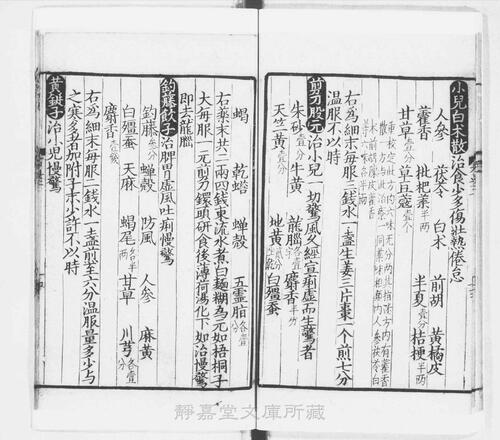 小兒白术散治食少多傷壯熱倦怠
人參 茯苓 白术 前胡 黃橘皮
藿香壹分 枇杷葉半兩 半夏壹分 桔梗半兩
甘草 草豆蔻壹个
右為細末每服三錢水一盞生姜三片棗一个煎七分
溫服不以時
剪刀股元治小兒一切驚風久經宣痢虛而生驚者
朱砂壹分 牛黃 龍腦 麝香半分
天竺黃 地黃 白殭蚕
蝎 乾蟾 蟬殼 五靈脂各壹分
右藥末共二兩四錢東流水煮白麵糊為元如梧桐子
大每服一元剪刀鐶頭研食後薄荷湯化下如治慢驚
即去龍腦
釣藤飲子治脾胃虛風吐痢慢驚
釣藤 蟬殼 防風 人參 麻黃
白殭蚕 天麻 蝎尾 甘草 川芎各壹分
麝香
右為細末每服二錢水一盞煎至六分溫服量多少与
之寒多者加附子末少許不以時
黃鋌子治小兒慢驚
靜嘉堂文庫所藏